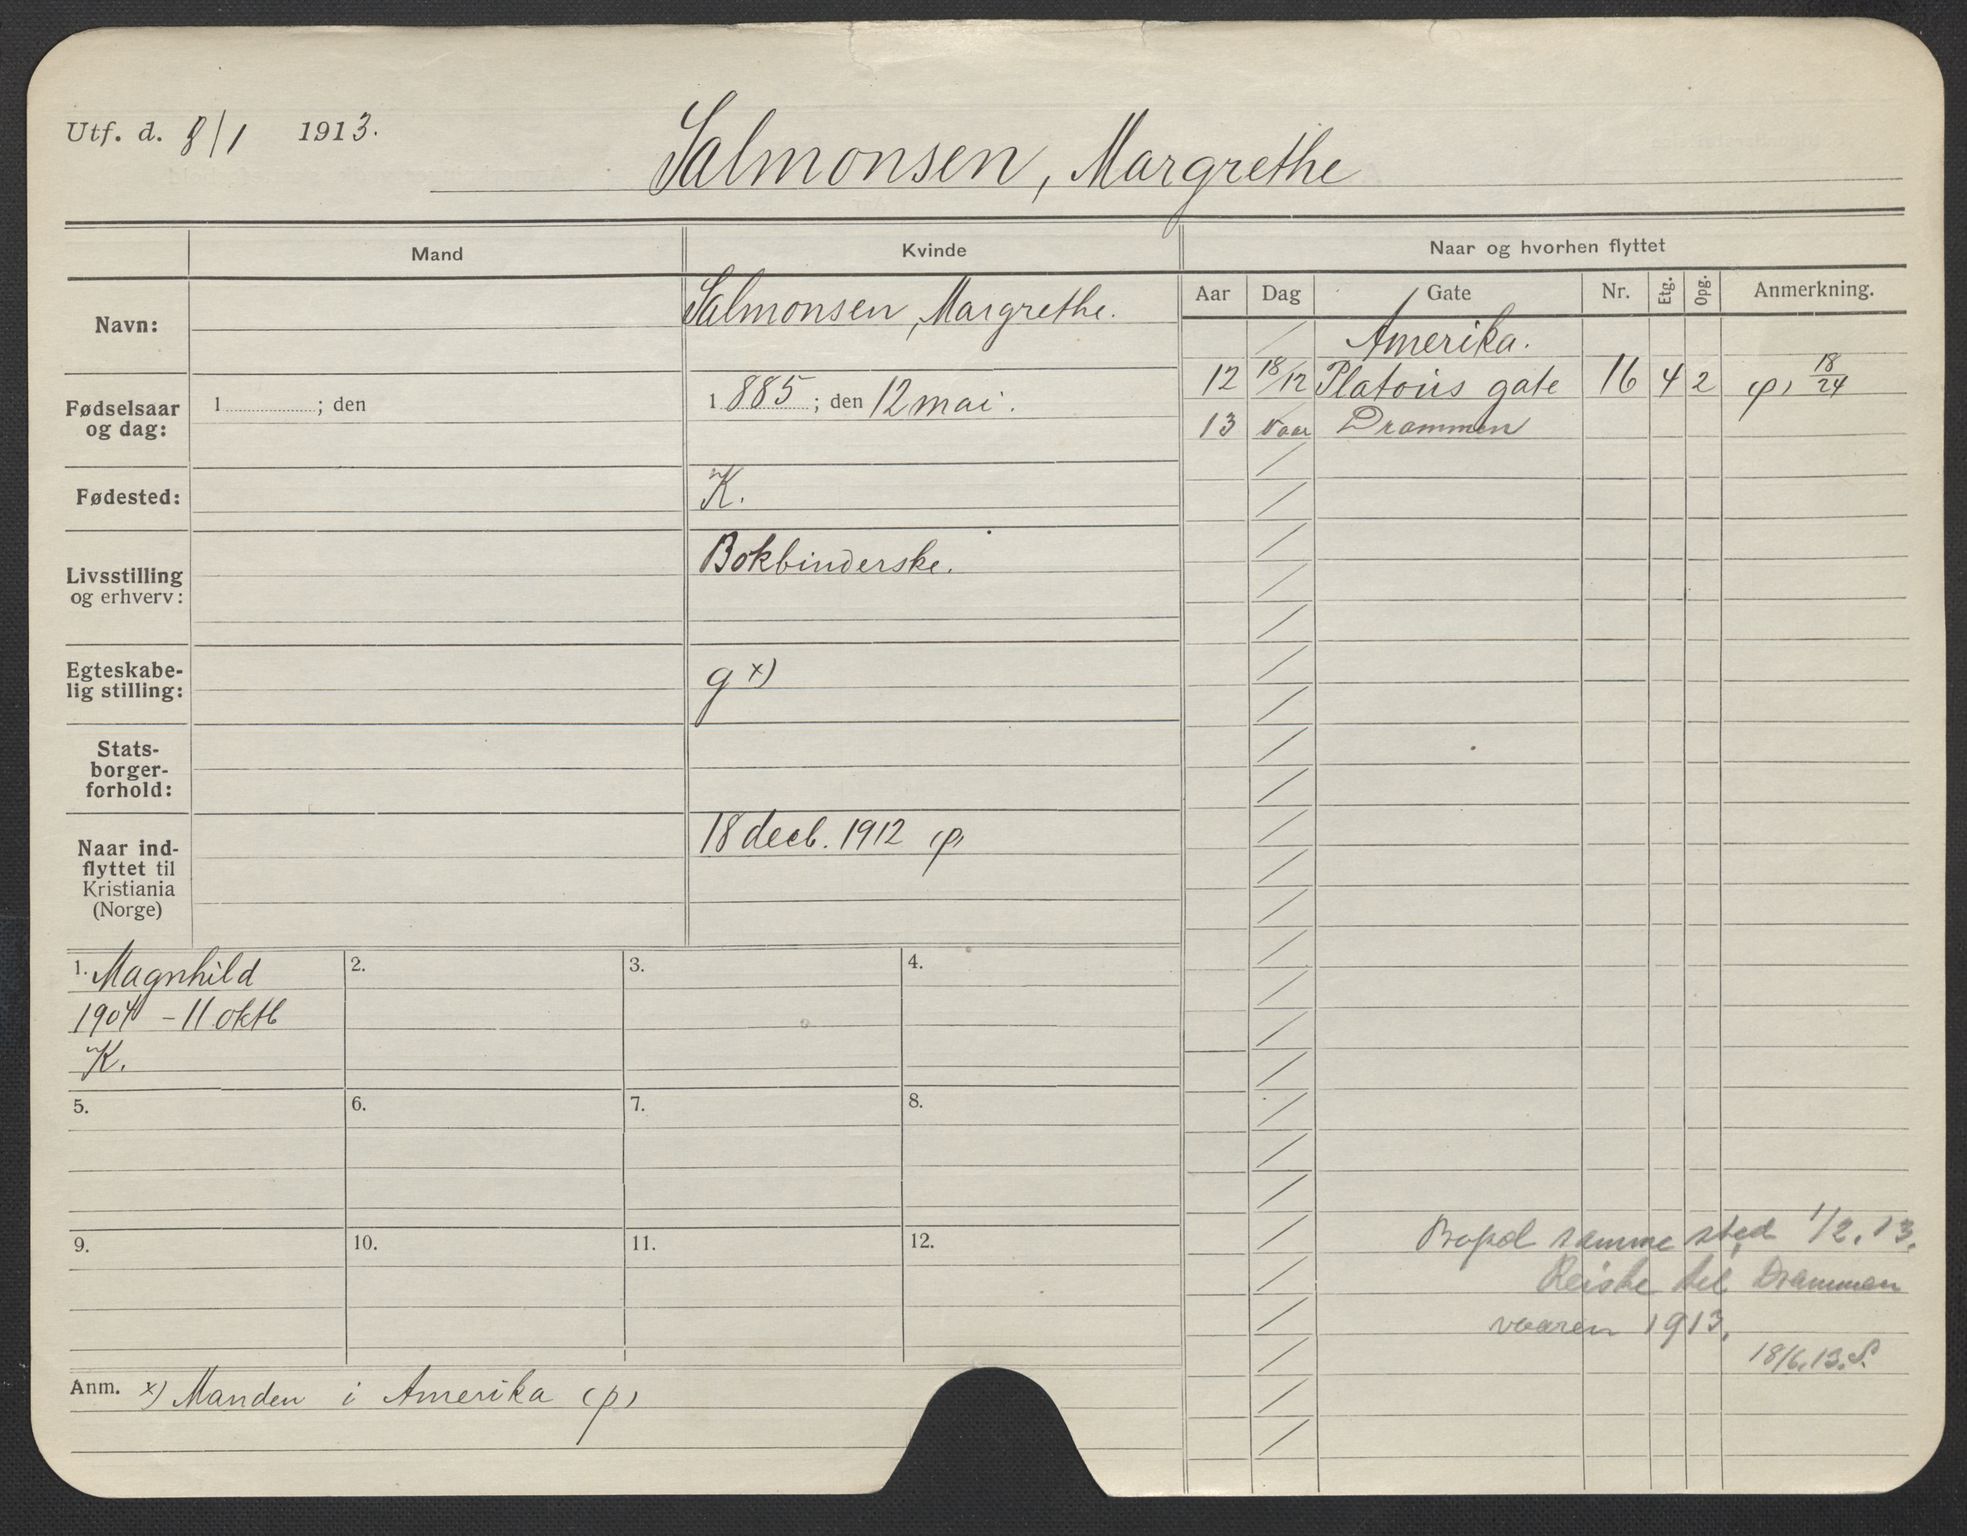 Utf. d. 8/1 1913.
Salmonsen, Margrethe
Mand
Kvinde
Naar og hvorhen flyttet
Aar Dag Gate Nr. Etg. Opg. Anmerkning.
Navn:
Salmonsen, Margrethe.
Fødselsaar
og dag:
1 ; den
1 885 ; den 12 mai.
Fødested:
K.
Livsstilling
og erhverv:
Bokbinderske.
Egteskabe-
lig stilling:
g x)
Stats-
borger-
forhold:
Naar ind-
flyttet til
Kristiania
(Norge)
18 decb. 1912 (p)
Amerika.
12 18/12 Platous gate 16 4 2 (p) 18/24
13 Vaar Drammen
1. Magnhild
1904 - 11 oktb
K.
2.
3.
4.
5.
6.
7.
8.
9.
10.
11.
12.
samme sted 1/2. 13.
Reiste til Drammen
vaaren 1913.
18/6. 13. S.
Anm. x) Manden i Amerika (p)